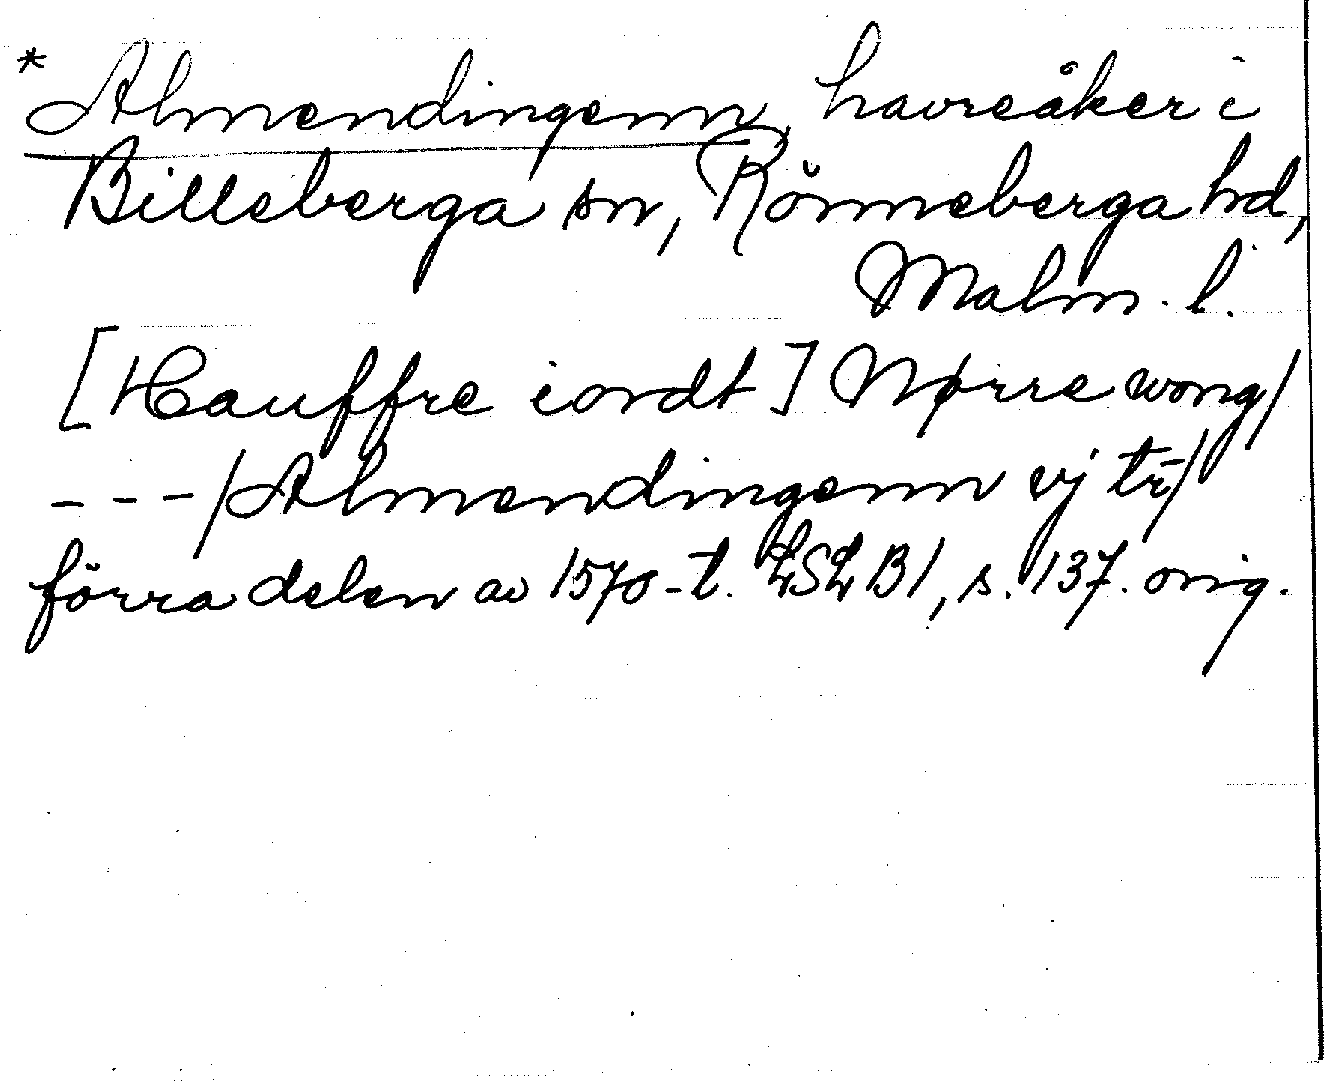 * Almendingenn, havreåker i
Billeberga sn, Rönneberga hd,
Malm. l.
[Hauffre iordt] Nørre wong/
---/Almendingenn vj tr̄/
förra delen av 1570-t. LSL B1, s. 137. orig.